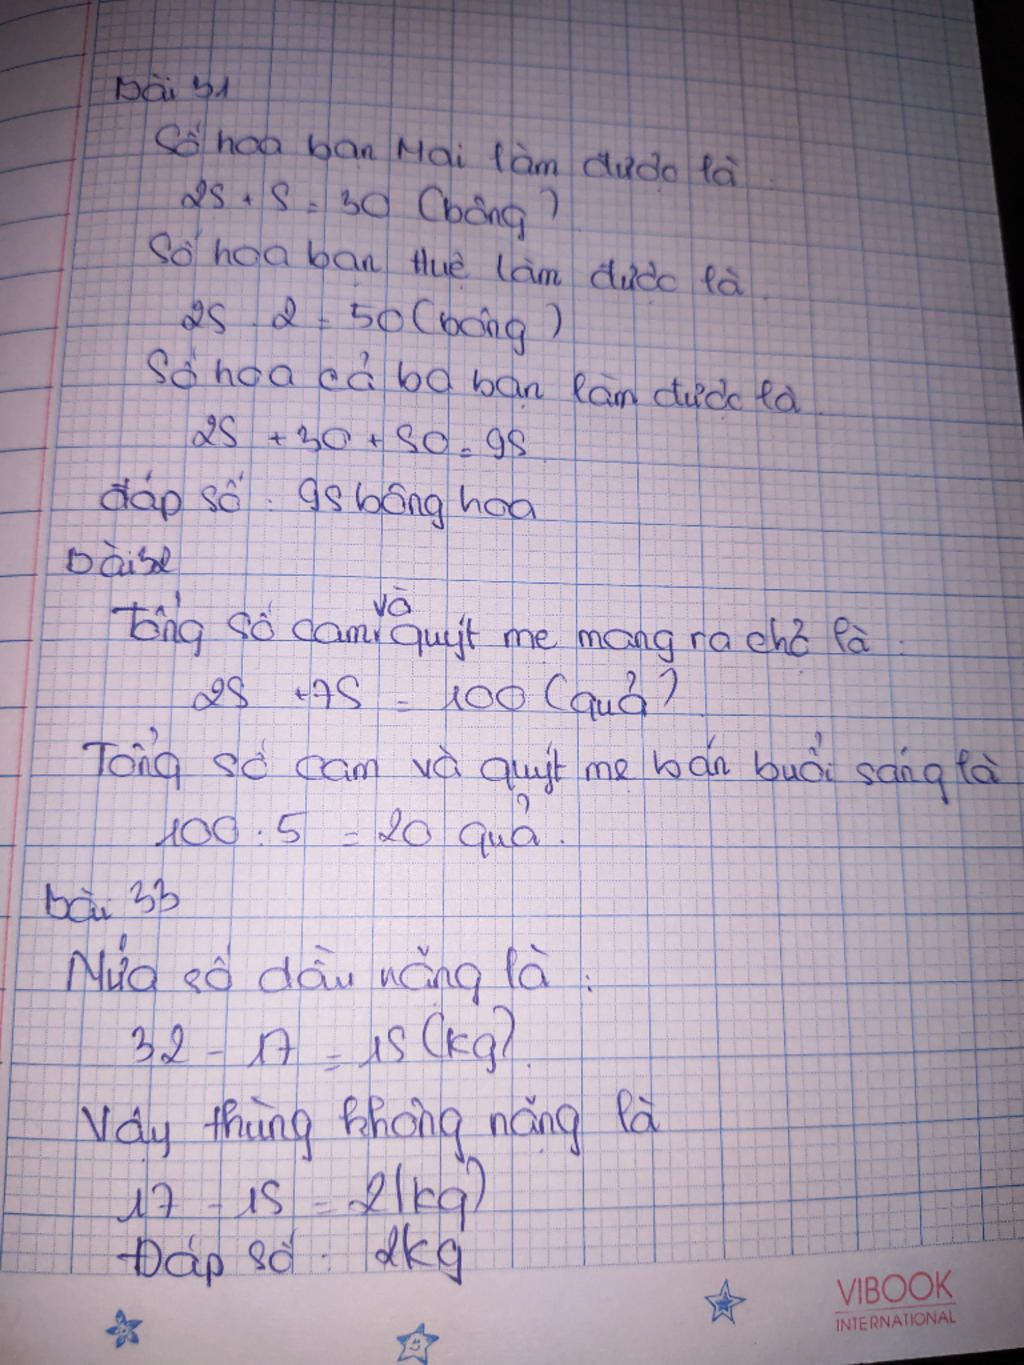 Bài 31
Số hoa bạn Mai làm được là
25 + 5 = 30 (bông)
Số hoa bạn Huệ làm được là
25 . 2 = 50 (bông)
Số hoa cả ba bạn làm được là
25 + 30 + 50 = 95
đáp số : 95 bông hoa
Bài 32
Tổng số cam và quýt mẹ mang ra chợ là :
25 + 75 = 100 (quả)
Tổng số cam và quýt mẹ bán buổi sáng là
100 : 5 = 20 quả .
Bài 33
Nửa số dầu nặng là :
32 - 17 = 15 (kg)
Vậy thùng không nặng là
17 - 15 = 2 (kg)
Đáp số : 2kg
VIBOOK
INTERNATIONAL